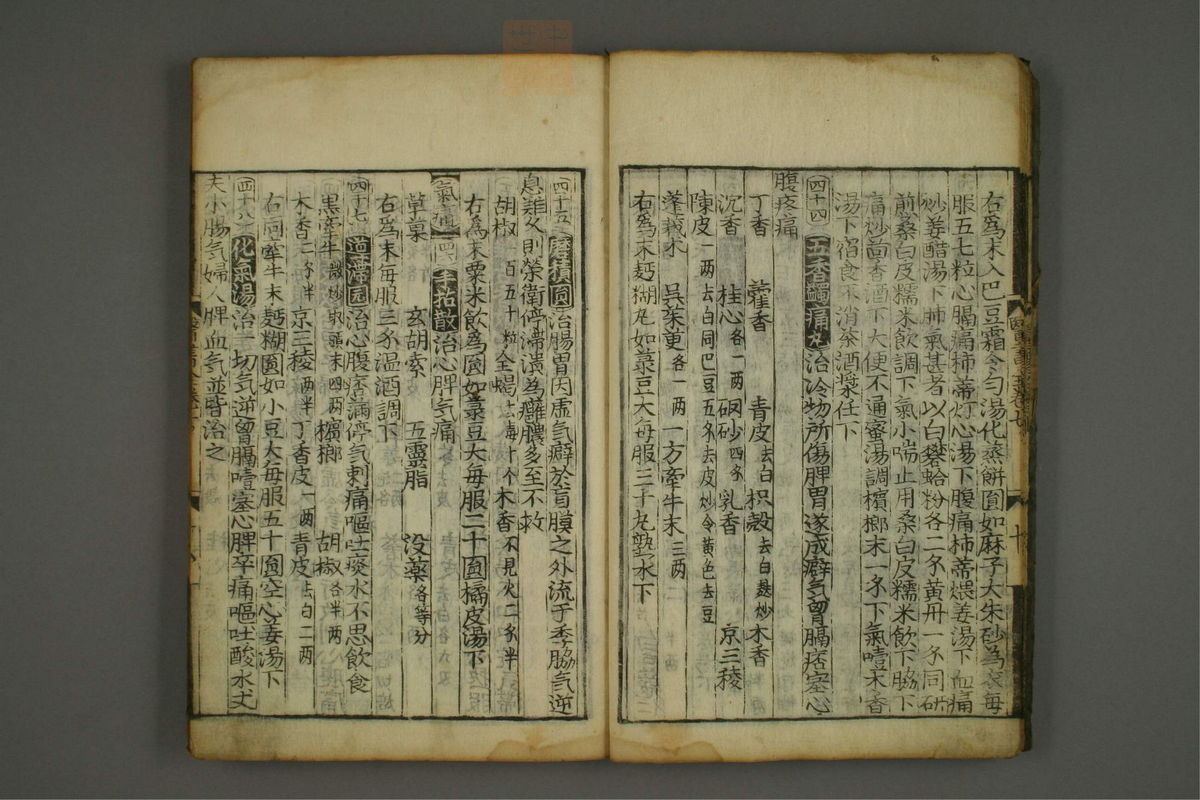 右爲末入巴豆霜令勻湯化蒸餅圓如麻子大朱砂為衣每
服五七粒心膈痛柿蒂灯心湯下腹痛柿蒂煨姜湯下血痛
炒姜醋湯下肺氣甚者以白礬蛤粉各二錢黃丹一錢同研
煎桑白皮糯米飲調下氣小喘止用桑白皮糯米飲下脇下
痛炒茴香酒下大便不通蜜湯調檳榔末一錢下氣噎木香
湯下宿食不消茶酒漿任下
四十四 五香蠲痛丸治冷物所傷脾胃遂成癖气胷膈痞塞心
腹疼痛
丁香 藿香 青皮去白 枳殼去白麸炒 木香
沉香 桂心各一两 砂四錢 乳香 京三稜
陳皮一两去白同巴豆五錢去皮炒令黄色去豆
蓬莪朮 吳茱萸各一两 一方牽牛末三两
右爲末麪糊丸如菉豆大每服三十丸熟水下
四十五 磨積圓治腸胃因虚气癖於肓膜之外流于季脇气逆
息難久則榮衛停滞潰為癰膿多至不救
胡椒一百五十粒 全蝎去毒十个 木香不見火二錢半
右爲末粟米飲為圓如菉豆大每服二十圓橘皮湯下
氣痛 四十六 手拈散治心脾气痛
草菓 玄胡索 五靈脂 没藥各等分
右爲末每服三錢温酒調下
四十七 導滯圓治心腹痞满停气刺痛嘔吐痰水不思飲食
黑牽牛微炒取頭末四两 檳榔 胡椒各半两
木香二錢半 京三稜两半 丁香皮一两 青皮去白二两
右同牽牛末麪糊圓如小豆大每服五十圓空心姜湯下
四十八 化氣湯治一切气逆胷膈噎塞心脾卒痛嘔吐酸水丈
夫小腸气婦人脾血气並皆治之